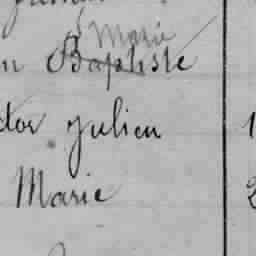 Marie
n Baptiste
ctor Julien 1
Marie 2